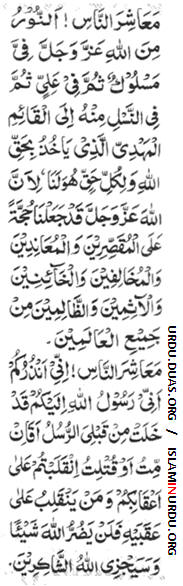 مَعَاشِرَ النَّاسِ! اَلنُّوْرُ
مِنَ اللهِ عَزَّ وَجَلَّ فِيَّ
مَسْلُوْكٌ ثُمَّ فِيْ عَلِيٍّ ثُمَّ
فِي النَّسْلِ مِنْهُ اِلَى الْقَائِمِ
الْمَهْدِيِّ الَّذِيْ يَاْخُذُ بِحَقِّ
اللهِ وَبِكُلِّ حَقٍّ هُوَ لَنَا لِاَنَّ
اللهَ عَزَّ وَجَلَّ قَدْ جَعَلَنَا حُجَّةً
عَلَى الْمُقَصِّرِيْنَ وَالْمُعَانِدِيْنَ
وَالْمُخَالِفِيْنَ وَالْخَائِنِيْنَ
وَالْاٰثِمِيْنَ وَالظَّالِمِيْنَ مِنْ
جَمِيْعِ الْعَالَمِيْنَ۔
مَعَاشِرَ النَّاسِ! اِنِّيْ اُنْذِرُكُمْ
اَنِّيْ رَسُوْلُ اللهِ اِلَيْكُمْ قَدْ
خَلَتْ مِنْ قَبْلِيَ الرُّسُلُ اَفَاِنْ
مِتُّ اَوْ قُتِلْتُ انْقَلَبْتُمْ عَلٰى
اَعْقَابِكُمْ وَمَنْ يَنْقَلِبْ عَلٰى
عَقِبَيْهِ فَلَنْ يَضُرَّ اللهَ شَيْئًا
وَسَيَجْزِى اللهُ الشَّاكِرِيْنَ۔
URDU.DUAS.ORG / ISLAMINURDU.ORG